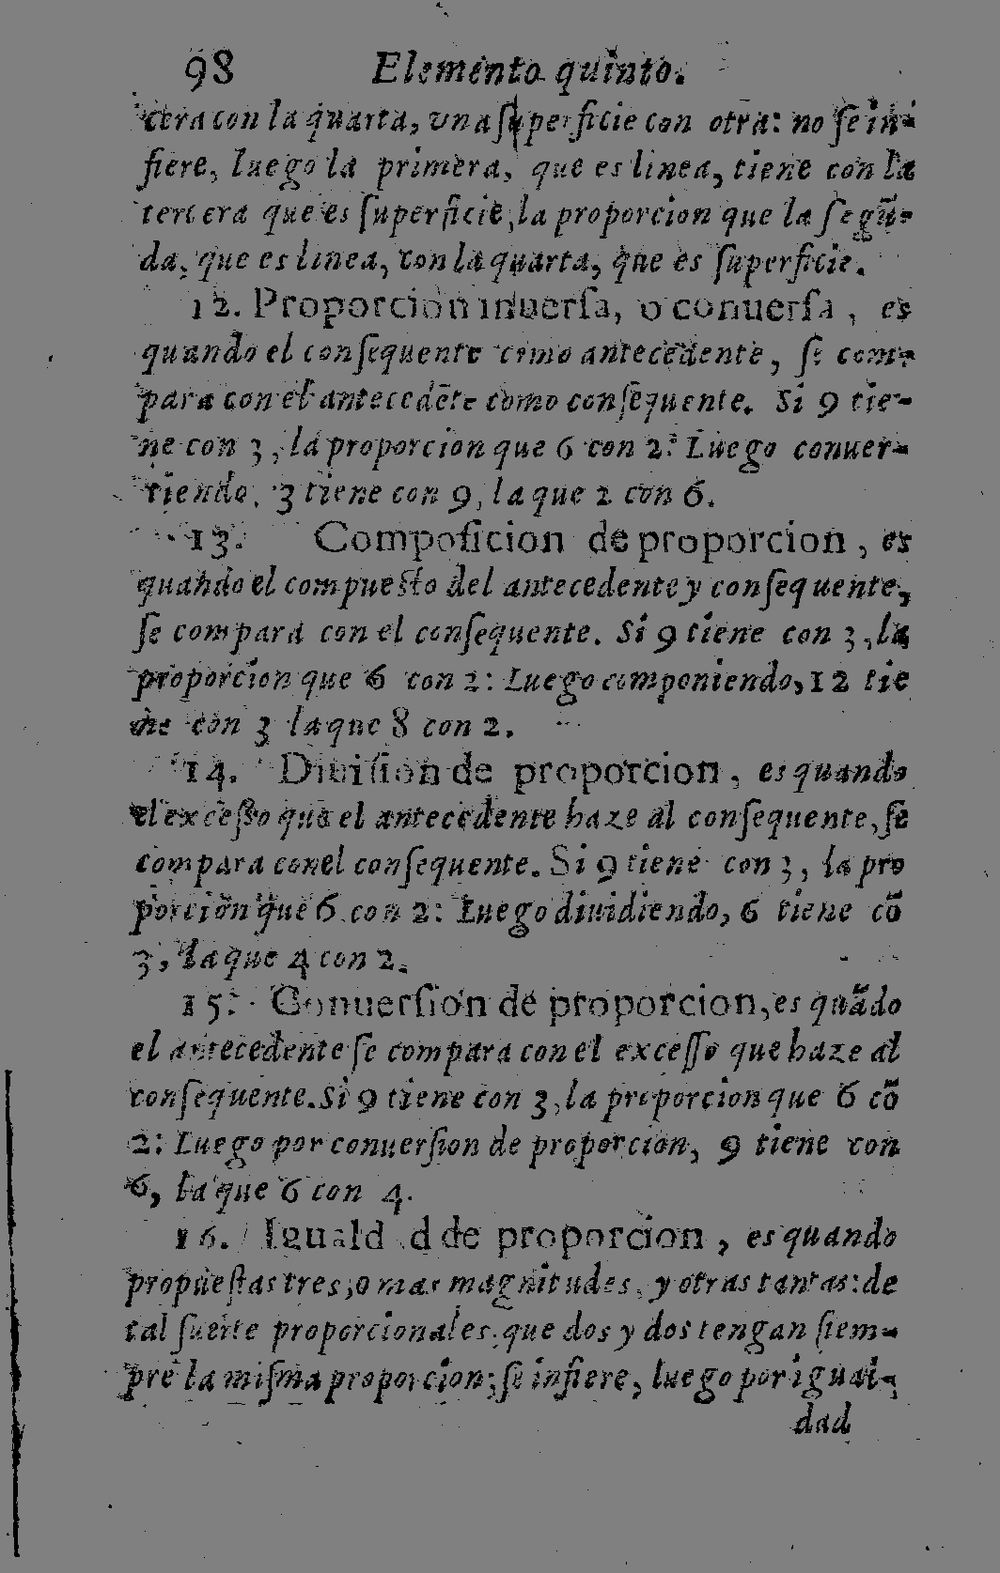 98 Elemento quinto.
cera con la quarta, vna superficie con otra: no se in-
fiere, luego la primera, que es linea, tiene con la
tercera que es superficie, la proporcion que la segũ-
da, que es linea, con la quarta, que es superficie.
12. Proporcion inuersa, o conuersa, es
quando el consequente como antecedente, se com-
para con el antecedẽte como consequente. Si 9 tie-
ne con 3, la proporcion que 6 con 2: Luego conuer-
tiendo, 3 tiene con 9, la que 2 con 6.
13. Composicion de proporcion, es
quando el compuesto del antecedente y consequente,
se compara con el consequente. Si 9 tiene con 3, la
proporcion que 6 con 2: Luego componiendo, 12 tie
ne con 3 la que 8 con 2.
14. Diuision de proporcion, es quando
el excesso que el antecedente haze al consequente, se
compara con el consequente. Si 9 tiene con 3, la pro
porcion que 6 con 2: Luego diuidiendo, 6 tiene cõ
3, la que 4 con 2.
15. Conuersion de proporcion, es quãdo
el antecedente se compara con el excesso que haze al
consequente. Si 9 tiene con 3, la proporcion que 6 cõ
2: Luego por conuersion de proporcion, 9 tiene con
6, la que 6 con 4.
16. Iguald d de proporcion, es quando
propuestas tres, o mas magnitudes, y otras tantas: de
tal suerte proporcionales, que dos y dos tengan siem-
pre la misma proporcion; se infiere, luego por igual-
dad